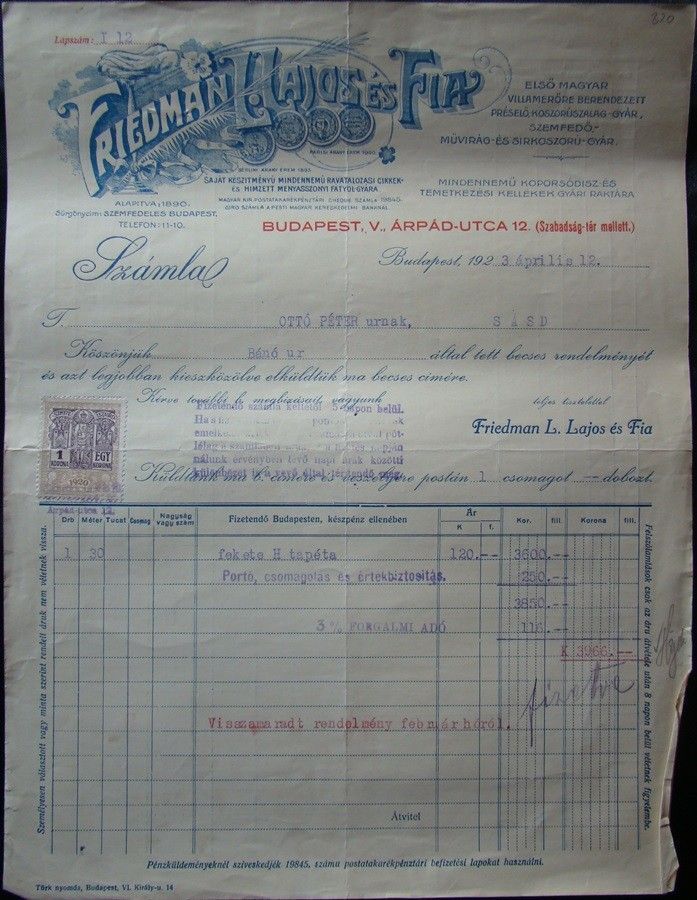 320
Lapszám: I 12
FRIEDMAN LAJOS ÉS FIA
BERLINI ARANY ÉREM 1893.
PÁRISI ARANY ÉREM 1900.
SAJÁT KÉSZITMÉNYÜ MINDENNEMÜ RAVATALOZÁSI CIKKEK-
ÉS HIMZETT MENYASSZONYI FÁTYOL-GYÁRA
MAGYAR KIR. POSTATAKARÉKPÉNZTÁRI CHEQUE SZÁMLA 19845.
GIRO SZÁMLA A PESTI MAGYAR KERESKEDELMI BANKNÁL
ELSŐ MAGYAR
VILLAMERŐRE BERENDEZETT
PRÉSELŐ KOSZORUSZALAG-GYÁR,
SZEMFEDŐ-
MŰVIRÁG-ÉS SIRKOSZORU-GYÁR.
MINDENNEMÜ KOPORSÓDISZ ÉS
TEMETKEZÉSI KELLÉKEK GYÁRI RAKTÁRA
ALAPITVA: 1890.
Sürgönycim: SZEMFEDELES BUDAPEST.
TELEFON: 11-10.
BUDAPEST, V., ÁRPÁD-UTCA 12. (Szabadság-tér mellett.)
Számla
Budapest, 192 3 április 12.
T. OTTÓ PÉTER urnak, SÁSD
Köszönjük Bénó ur által tett becses rendelményét
és azt legjobban kieszközölve elküldtük ma becses cimére.
Kérve további b. megbizásait, vagyunk
teljes tisztelettel
Friedman L. Lajos és Fia
Fizetendő számla keltétől 5 napon belül.
1 KORONA EGY KORONA
1920
Küldtünk ma b. cimére és veszélyére postán 1 csomagot -- dobozt.
Árpád-utca 12.
Drb Méter Tucat Csomag Nagyság vagy szám Fizetendő Budapesten, készpénz ellenében Ár K f. Kor. fill. Korona fill.
1 30 fekete H tapéta 120.-- 3600.--
Portó, csomagolás és értékbiztositás. 250.--
3850.--
3 % FORGALMI ADÓ 116.--
K 3966.--
fizetve
Visszamaradt rendelmény február hóról.
Átvitel
Személyesen választott vagy minta szerint rendelt áruk nem vétetnek vissza.
Felszólamlások csak az áru átvétele után 8 napon belül vétetnek figyelembe.
Pénzküldeményeknél sziveskedjék 19845. számu postatakarékpénztári befizetési lapokat használni.
Türk nyomda, Budapest, VI. Király-u. 14